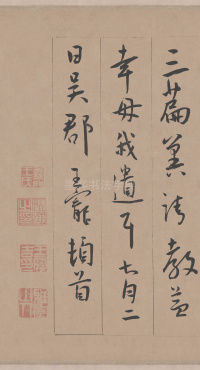 三篇冀請教益
幸毋我遺耳七月二
日吳郡王寵頓首